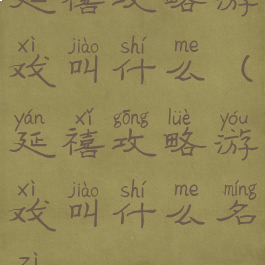 延禧攻略游
xì jiào shí me
戏叫什么(
yán xǐ gōng lüè yóu
延禧攻略游
xì jiào shí me míng
戏叫什么名
zì